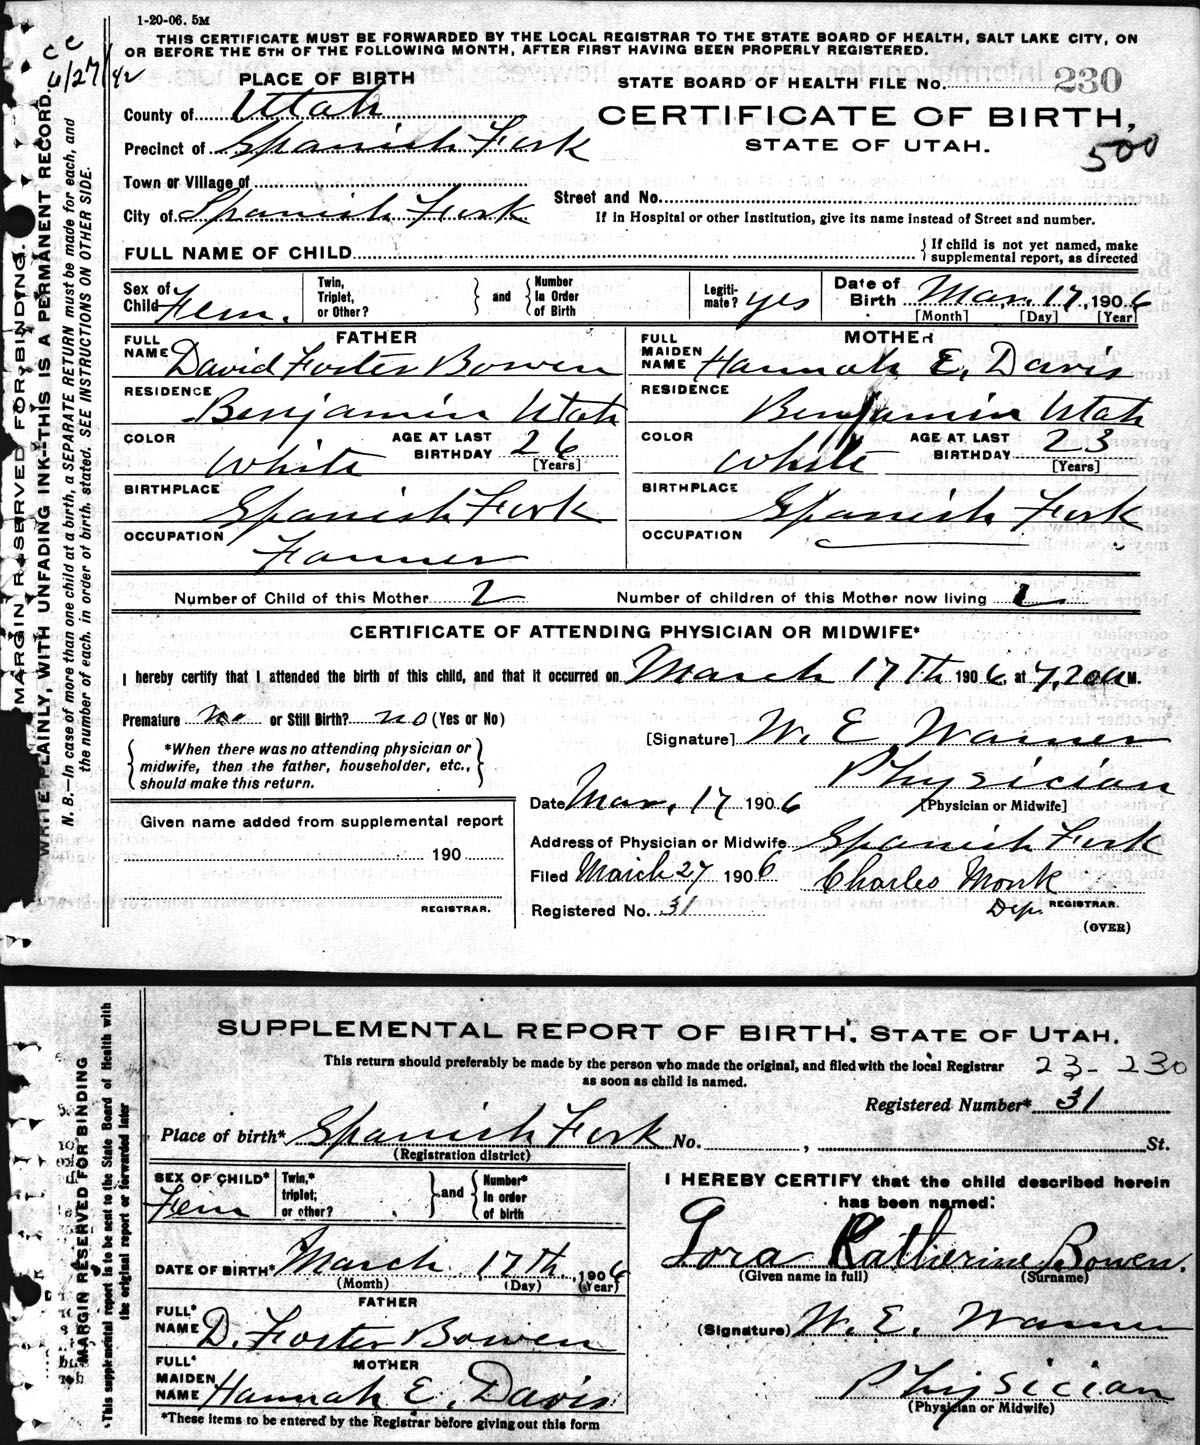 1-20-06. 5M
THIS CERTIFICATE MUST BE FORWARDED BY THE LOCAL REGISTRAR TO THE STATE BOARD OF HEALTH, SALT LAKE CITY, ON
OR BEFORE THE 5TH OF THE FOLLOWING MONTH, AFTER FIRST HAVING BEEN PROPERLY REGISTERED.
cc
4/27/42
MARGIN RESERVED FOR BINDING.
WRITE PLAINLY, WITH UNFADING INK—THIS IS A PERMANENT RECORD.
N. B.—In case of more than one child at a birth, a SEPARATE RETURN must be made for each, and
the number of each, in order of birth, stated. SEE INSTRUCTIONS ON OTHER SIDE.
PLACE OF BIRTH
STATE BOARD OF HEALTH FILE No. 230
County of Utah
CERTIFICATE OF BIRTH,
Precinct of Spanish Fork
STATE OF UTAH.
500
Town or Village of
Street and No.
City of Spanish Fork
If in Hospital or other Institution, give its name instead of Street and number.
FULL NAME OF CHILD
If child is not yet named, make
supplemental report, as directed
Sex of Child Fem.
Twin, Triplet, or Other?
and
Number In Order of Birth
Legiti-mate? yes
Date of Birth Mar. 17, 1906
[Month] [Day] [Year]
FATHER
MOTHER
FULL NAME David Foster Bowen
FULL MAIDEN NAME Hannah E. Davis
RESIDENCE Benjamin Utah
RESIDENCE Benjamin Utah
COLOR White AGE AT LAST BIRTHDAY 26 [Years]
COLOR White AGE AT LAST BIRTHDAY 23 [Years]
BIRTHPLACE Spanish Fork
BIRTHPLACE Spanish Fork
OCCUPATION Farmer
OCCUPATION
Number of Child of this Mother 2 Number of children of this Mother now living
CERTIFICATE OF ATTENDING PHYSICIAN OR MIDWIFE*
I hereby certify that I attended the birth of this child, and that it occurred on March 17th 1906, at 7,20 a M.
Premature no or Still Birth? no (Yes or No)
[Signature] W. E. Warner
*When there was no attending physician or
midwife, then the father, householder, etc.,
should make this return.
Physician
Date Mar. 17 1906
[Physician or Midwife]
Given name added from supplemental report
Address of Physician or Midwife Spanish Fork
190
Filed March 27 1906 Charles Monk
REGISTRAR.
Registered No. 31 Dep. REGISTRAR.
(OVER)
SUPPLEMENTAL REPORT OF BIRTH, STATE OF UTAH.
This return should preferably be made by the person who made the original, and filed with the local Registrar
as soon as child is named.
23-230
Registered Number* 31
MARGIN RESERVED FOR BINDING
This supplemental report to be sent to the State Board of Health with
the original report or forwarded later
Place of birth* Spanish Fork No. , St.
(Registration district)
SEX OF CHILD* Fem
Twin,* triplet, or other?
and
Number* in order of birth
I HEREBY CERTIFY that the child described herein
has been named:
Lora Katherine Bowen.
(Given name in full) (Surname)
DATE OF BIRTH* March 17th, 1906
(Month) (Day) (Year)
FATHER
FULL* NAME D. Foster Bowen
(Signature) W. E. Warner
MOTHER
FULL* MAIDEN NAME Hannah E. Davis
Physician
(Physician or Midwife)
*These items to be entered by the Registrar before giving out this form